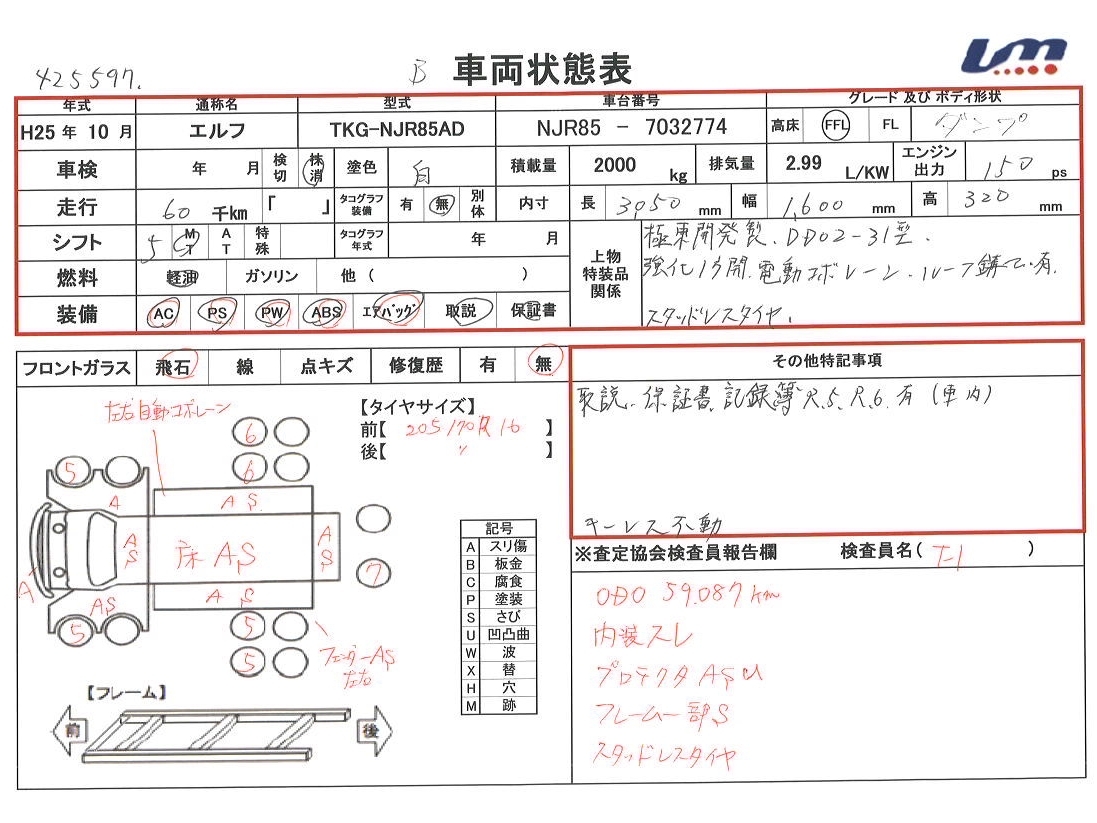 425597.
B 車両状態表
UM
年式 通称名 型式 車台番号 グレード 及び ボディ形状
H25 年 10 月 エルフ TKG-NJR85AD NJR85 - 7032774 高床 FFL FL ダンプ
車検 年 月 検切 抹消 塗色 白 積載量 2000 kg 排気量 2.99 L/KW エンジン出力 150 ps
走行 60 千km 「 」 タコグラフ装備 有 無 別体 内寸 長 3,050 mm 幅 1,600 mm 高 320 mm
シフト 5 MT AT 特殊 タコグラフ年式 年 月
燃料 軽油 ガソリン 他 ( )
装備 AC PS PW ABS エアバッグ 取説 保証書
上物特装品関係
極東開発製、DD02-31型、
強化1方開、電動コボレーン、ループ鋳て、有、
スタッドレスタイヤ、
フロントガラス 飛石 線 点キズ 修復歴 有 無
左右自動コボレーン
【タイヤサイズ】
前【 205/70R16 】
後【 〃 】
6
6
5
A
A S
A S
床 A S
A S
A S
A
A S
7
5
5
5
フェンダーAS
左右
記号
A スリ傷
B 板金
C 腐食
P 塗装
S さび
U 凹凸曲
W 波
X 替
H 穴
M 跡
【フレーム】
前
後
その他特記事項
取説、保証書、記録簿R.5、R.6、有(車内)
キーレス不動
※査定協会検査員報告欄 検査員名( T-1 )
ODO 59.087km
内装スレ
プロテクタ ASU
フレーム一部S
スタッドレスタイヤ